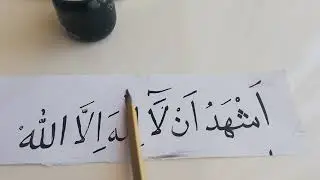 اَشْهَدُ اَنْ لَآ اِلٰهَ اِلَّا اللهُ